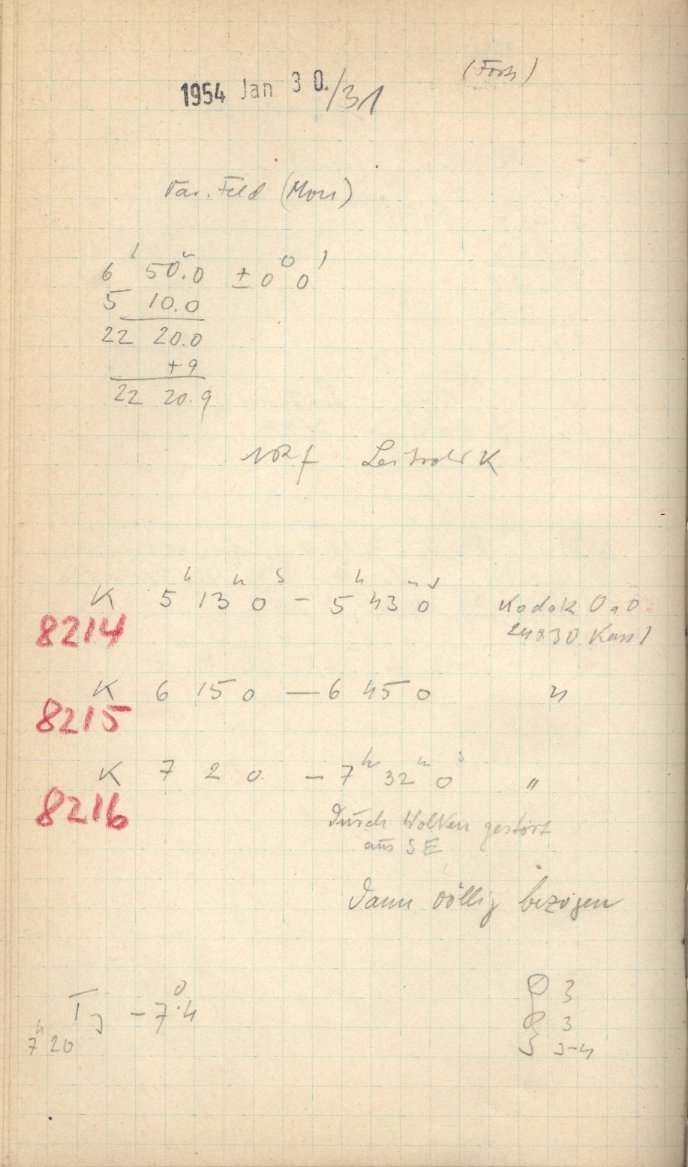 1954 Jan 30./31
(Forts)
Var. Feld (Mon)
6ʰ 50ᵐ.0 ± 0⁰ 0'
5 10.0
22 20.0
+9
22 20.9
K 5ʰ 13ᵐ 0ˢ – 5ʰ 43ᵐ 0ˢ Kodak OaO
8214 24x30 Kass 1
K 6 15 0 — 6 45 0 "
8215
K 7 2 0 – 7ʰ 32ᵐ 0ˢ "
8216
durch Wolken gestört
aus SE
Dann völlig bezogen
T -7⁰.4
7ʰ 20
3
3
3-4